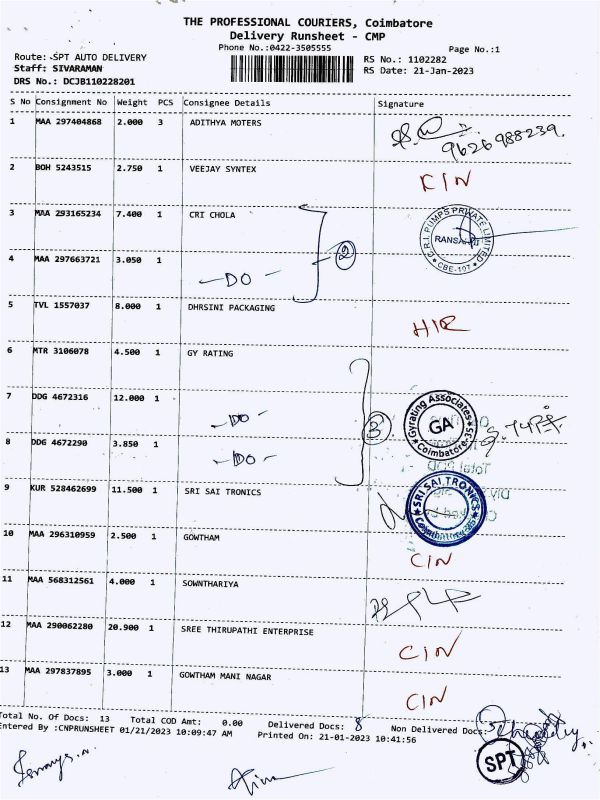 THE PROFESSIONAL COURIERS, Coimbatore
Delivery Runsheet - CMP
Phone No.:0422-3505555
Page No.:1
Route: SPT AUTO DELIVERY
RS No.: 1102282
Staff: SIVARAMAN
RS Date: 21-Jan-2023
DRS No.: DCJB110228201
S No Consignment No Weight PCS Consignee Details Signature
1 MAA 297404868 2.000 3 ADITHYA MOTERS
9626988239.
2 BOH 5243515 2.750 1 VEEJAY SYNTEX CIN
3 MAA 293165234 7.400 1 CRI CHOLA
C.R.I. PUMPS PRIVATE LIMITED
CBE-107
2
4 MAA 297663721 3.050 1 -DO-
5 TVL 1557037 8.000 1 DHRSINI PACKAGING
6 MTR 3106078 4.500 1 GY RATING
7 DDG 4672316 12.000 1 -DO-
Gyrating Associates
GA
Coimbatore-35
3
8 DDG 4672290 3.850 1 -DO-
9 KUR 528462699 11.500 1 SRI SAI TRONICS
SRI SAI TRONICS
10 MAA 296310959 2.500 1 GOWTHAM CIN
11 MAA 568312561 4.000 1 SOWNTHARIYA
12 MAA 290062280 20.900 1 SREE THIRUPATHI ENTERPRISE CIN
13 MAA 297837895 3.000 1 GOWTHAM MANI NAGAR CIN
Total No. Of Docs: 13 Total COD Amt: 0.00 Delivered Docs: 8 Non Delivered Docs:
Entered By :CNPRUNSHEET 01/21/2023 10:09:47 AM Printed On: 21-01-2023 10:41:56
SPT